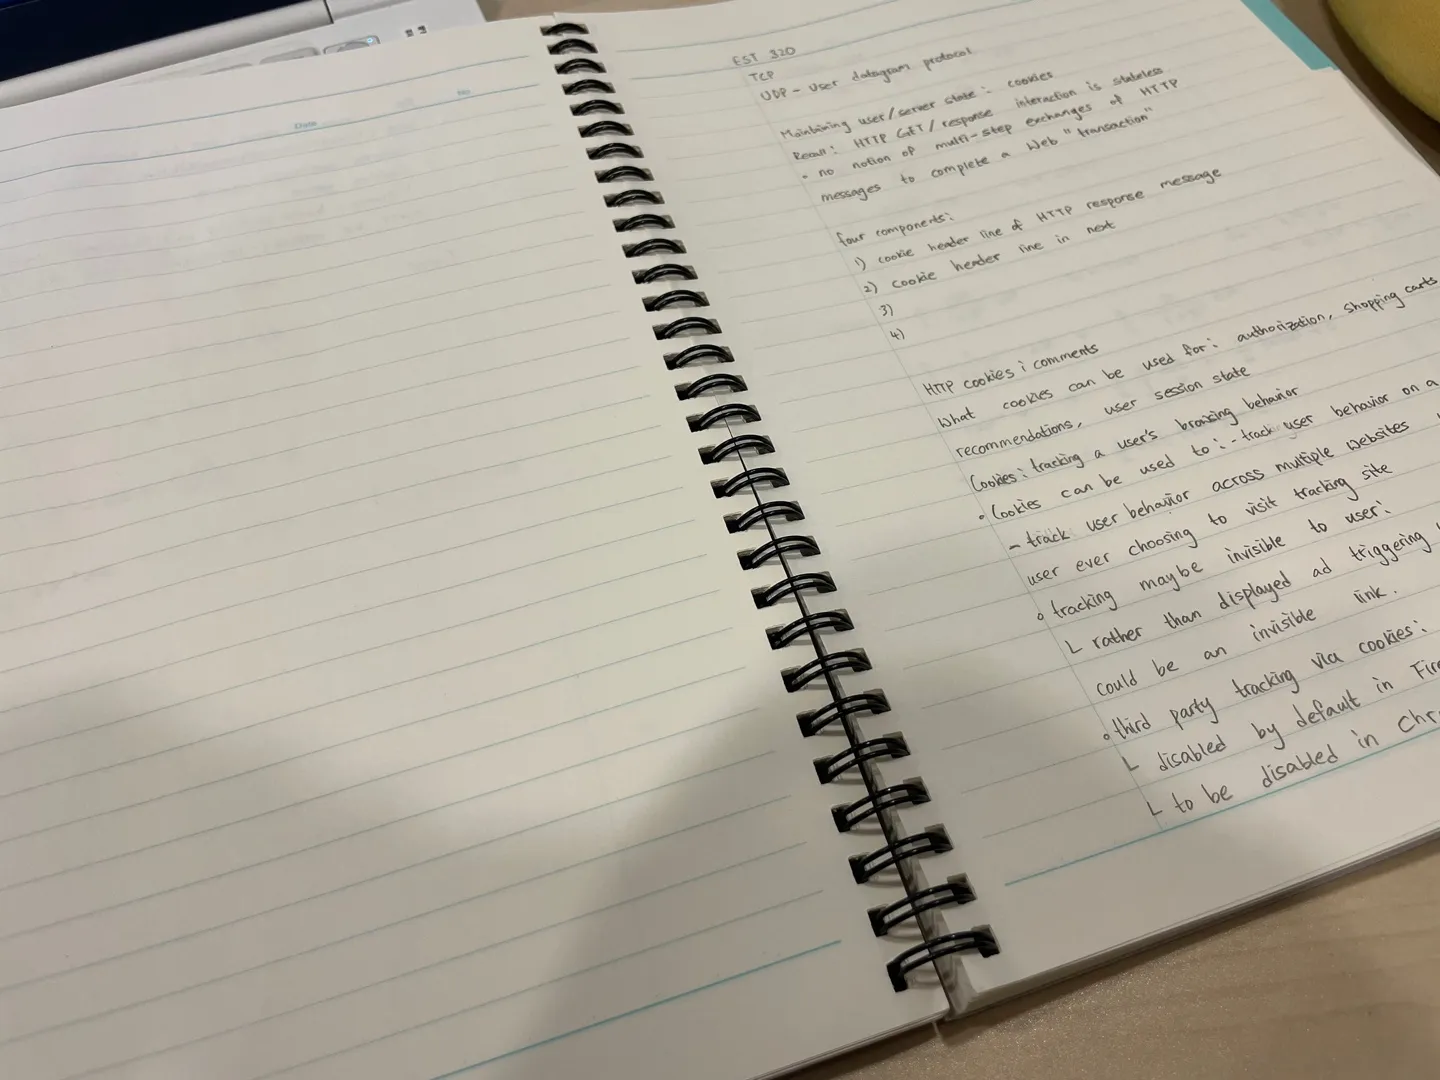 Date
No
EST 320
TCP
UDP - User datagram protocol
Maintaining user/server state: cookies
Recall: HTTP GET/response interaction is stateless
- no notion of multi-step exchanges of HTTP
messages to complete a Web "transaction"
four components:
1) cookie header line of HTTP response message
2) cookie header line in next
3)
4)
HTTP cookies: comments
What cookies can be used for: authorization, shopping carts
recommendations, user session state
Cookies: tracking a user's browsing behavior
• Cookies can be used to: - track user behavior on a
- track user behavior across multiple websites
user ever choosing to visit tracking site
o tracking maybe invisible to user:
L rather than displayed ad triggering
could be an invisible link.
o third party tracking via cookies:
L disabled by default in Fire
L to be disabled in Chr